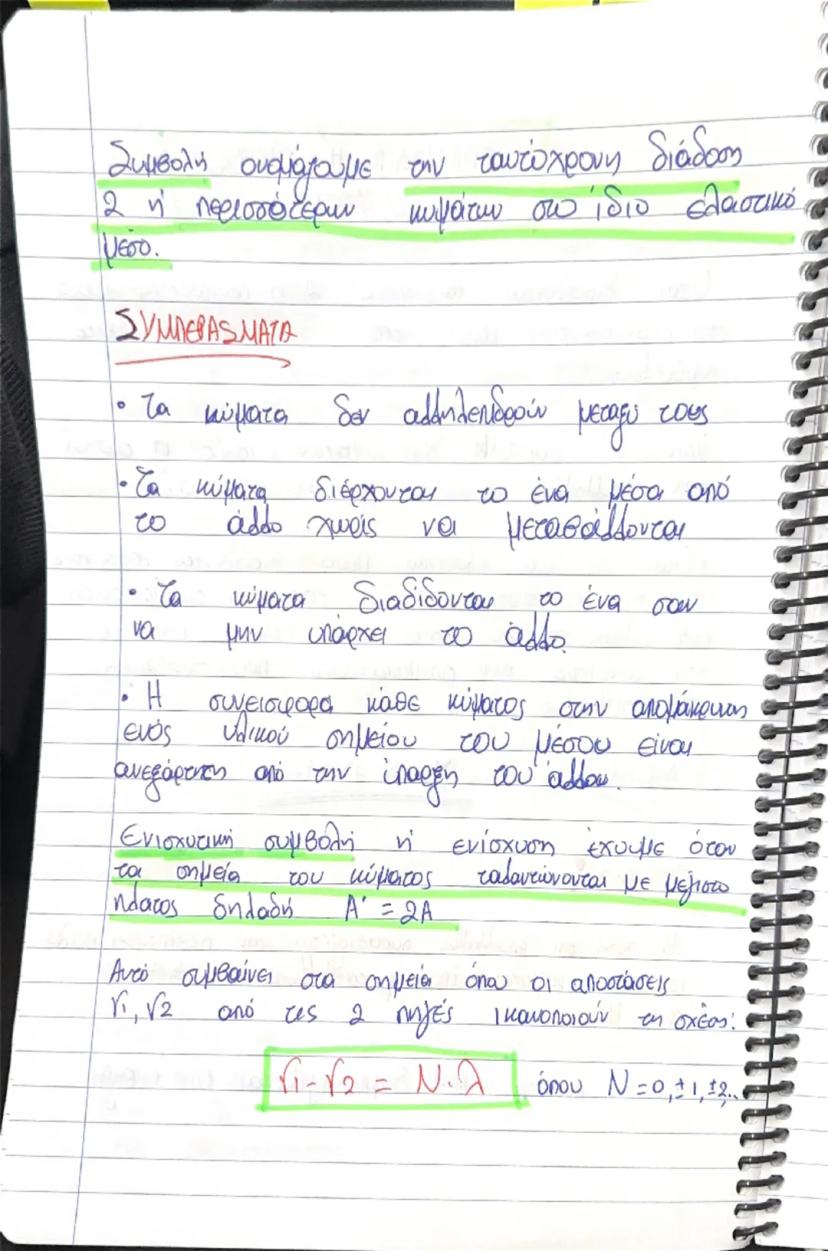 Συμβολή ονομάζουμε την ταυτόχρονη διάδοση
2 ή περισσότερων κυμάτων στο ίδιο ελαστικό
μέσο.
ΣΥΜΠΕΡΑΣΜΑΤΑ
• Τα κύματα δεν αλληλεπιδρούν μεταξύ τους
• Τα κύματα διέρχονται το ένα μέσα από
το άλλο χωρίς να μεταβάλλονται
• Τα κύματα διαδίδονται το ένα σαν
να μην υπάρχει το άλλο.
• Η συνεισφορά κάθε κύματος στην απομάκρυνση
ενός υλικού σημείου του μέσου είναι
ανεξάρτητη από την ύπαρξη του άλλου.
Ενισχυτική συμβολή ή ενίσχυση έχουμε όταν
τα σημεία του κύματος ταλαντώνονται με μέγιστο
πλάτος δηλαδή A' = 2A
Αυτό συμβαίνει στα σημεία όπου οι αποστάσεις
r1, r2 από τις 2 πηγές ικανοποιούν τη σχέση:
r1 - r2 = N·λ όπου N = 0, ±1, ±2,..